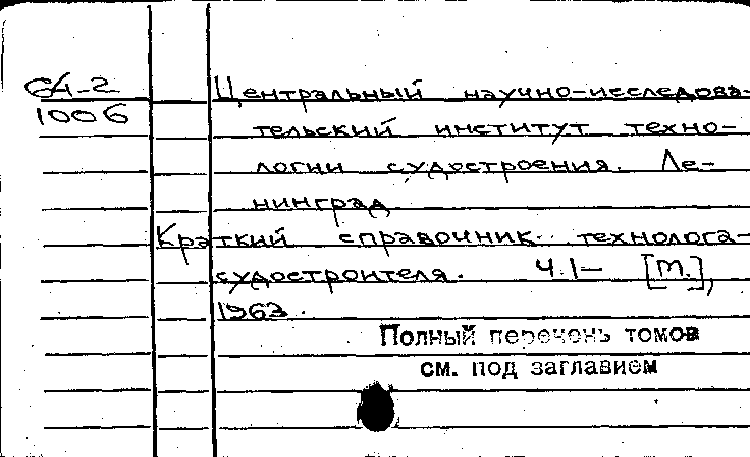 64-2
1006
Центральный научно-исследова-
тельский институт техно-
логии судостроения. Ле-
нинград
Краткий справочник технолога-
судостроителя. Ч.1- [М.],
1963.
Полный перечень томов
см. под заглавием